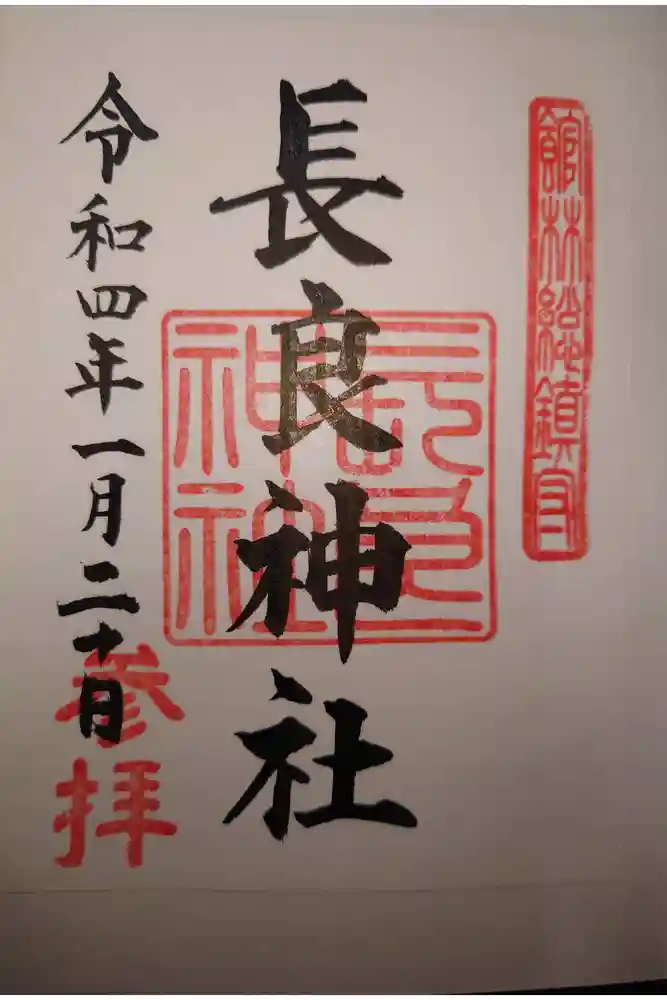 館林総鎮守
長良神社
長良神社
令和四年一月二十日
参拝